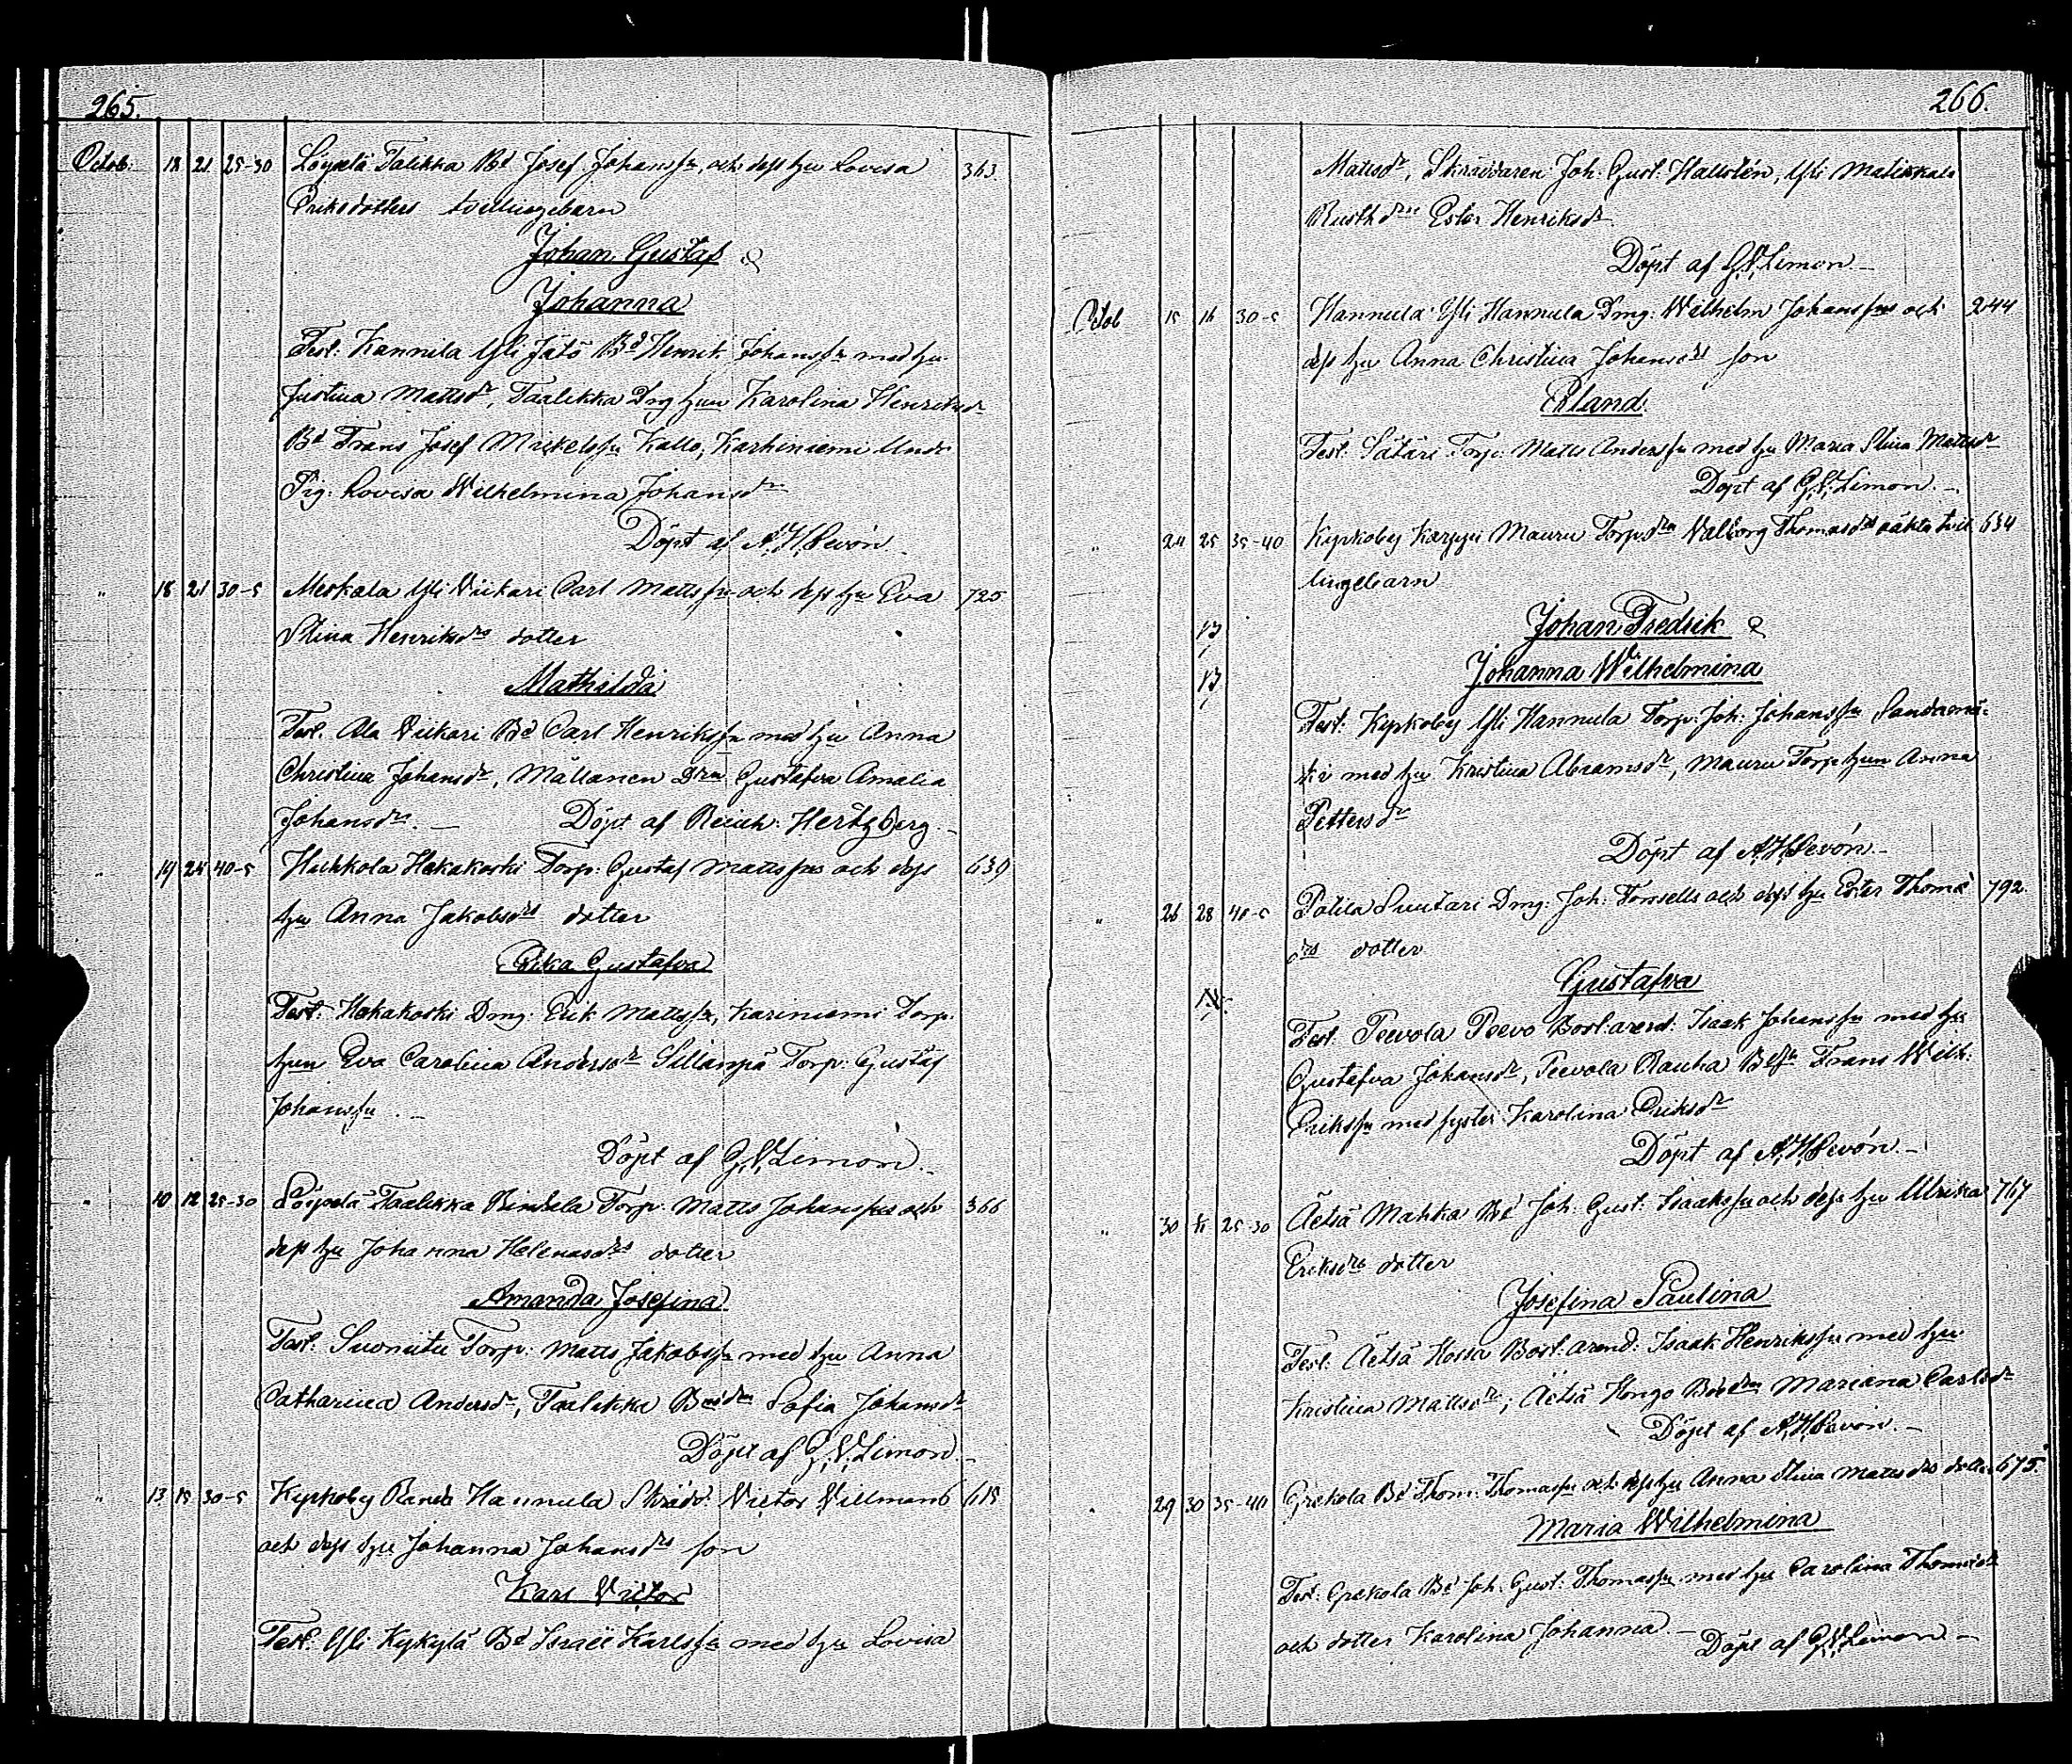 265.
Octob. 18 21 25-30 Löypälä Talikka Bd Josef Johansson, och dess hu Lovisa 363.
Eriksdotters tvillingebarn
Johan Gustaf &
Johanna
Test. Kannila Yli Jätö Bd Henrik Johansson med hu
Justina Mattsdr, Taalikka Drg hun Karolina Henriksdr
Bd Frans Josef Mickelsson Kallo, Karhiniemi
Pig. Lovisa Wilhelmina Johansdr
Döpt af A.H. Levón
" 18 21 30-5 Meskala Yli Viikari Carl Mattsson och dess hu Eva 725
Stina Henriksdrs dotter
Mathilda
Test. Ala Viikari Bd Carl Henriksson med hu Anna
Christina Johansdr, Mällänen Gustafva Amalia
Johansdr. — Döpt af Reinh. Hertzberg. —
" 19 24 40-5 Huhkola Hakakoski Torp. Gustaf Mattssons och dess 639
hu Anna Jakobsdrs dotter
Erika Gustafva
Test. Hakakoski Drng. Erik Mattsson, Kariniemi Torp.
hun Eva Carolina Andersdr Sillanpä Torp. Gustaf
Johansson. —
Döpt af G.V. Limon. —
" 10 12 25-30 Löypälä Taalikka Rintala Torp. Matts Johanssons och 366
dess hu Johanna Helenasdrs dotter
Amanda Josefina
Test. Suoniitu Torp. Matts Jakobsson med hu Anna
Catharina Andersdr, Taalikka Sofia Johansdr
Döpt af G.V. Limon. —
" 13 15 30-5 Kyrkoby Rands Hannula Skrädd. Victor Villmans 615
och dess hu Johanna Johansdrs son
Karl Victor
Test. Yli Kykylä Bd Israel Karlsson med hu Lovisa
266.
Mattsdr, Skräddaren Joh. Gust. Hallstén, Yli Matikkala
Rusth Ester Henriksdr
Döpt af G.V. Limon. —
Octob 15 16 30-5 Hannula Yli Hannula Drng. Wilhelm Johanssons och 244
dess hu Anna Christina Johansdrs son
Erland
Test. Sätäri Torp. Matts Andersson med hu Maria Stina Mattsdr
Döpt af G.V. Limon. —
" 24 25 35-40 Kyrkoby Karppi Mauru Torpdra Valborg Thomasdrs oäkta tvil 634
lingebarn
Johan Fredrik &
Johanna Wilhelmina
Test. Kyrkoby Yli Hannula Torp. Joh. Johansson Sandamä-
ki med hu Kristina Abramsdr, Mauru Torp hun Anna
Pettersdr
Döpt af A.H. Levón. —
" 26 28 40-5 Potila Suutari Drng. Joh. Forssells och dess hu Ester Thomæ 792.
drs dotter
Gustafva
Test. Peevola Peevo Bost. arend. Isaak Johansson med hu
Gustafva Johansdr, Peevola Rauha Frans Wilh.
Eriksson med syster Karolina Eriksdr
Döpt af A.H. Levón. —
" 30 25-30 Äetsä Mahka Bd Joh. Gust. Isaaksson och dess hu Ulrika 767
Eriksdrs dotter
Josefina Paulina
Test. Äetsä Hossa Bost. arend. Isaak Henriksson med hu
Kristina Mattsdr, Äetsä Hongo Mariana Carlsdr
Döpt af A.H. Levón. —
" 29 30 35-40 Grekola Bd Thom. Thomasson och dess hu Anna Stina Mattsdrs dotter 675.
Maria Wilhelmina
Test. Grekola Bd Joh. Gust. Thomasson med hu Carolina Thomædr
och dotter Karolina Johanna. — Döpt af G.V. Limon. —